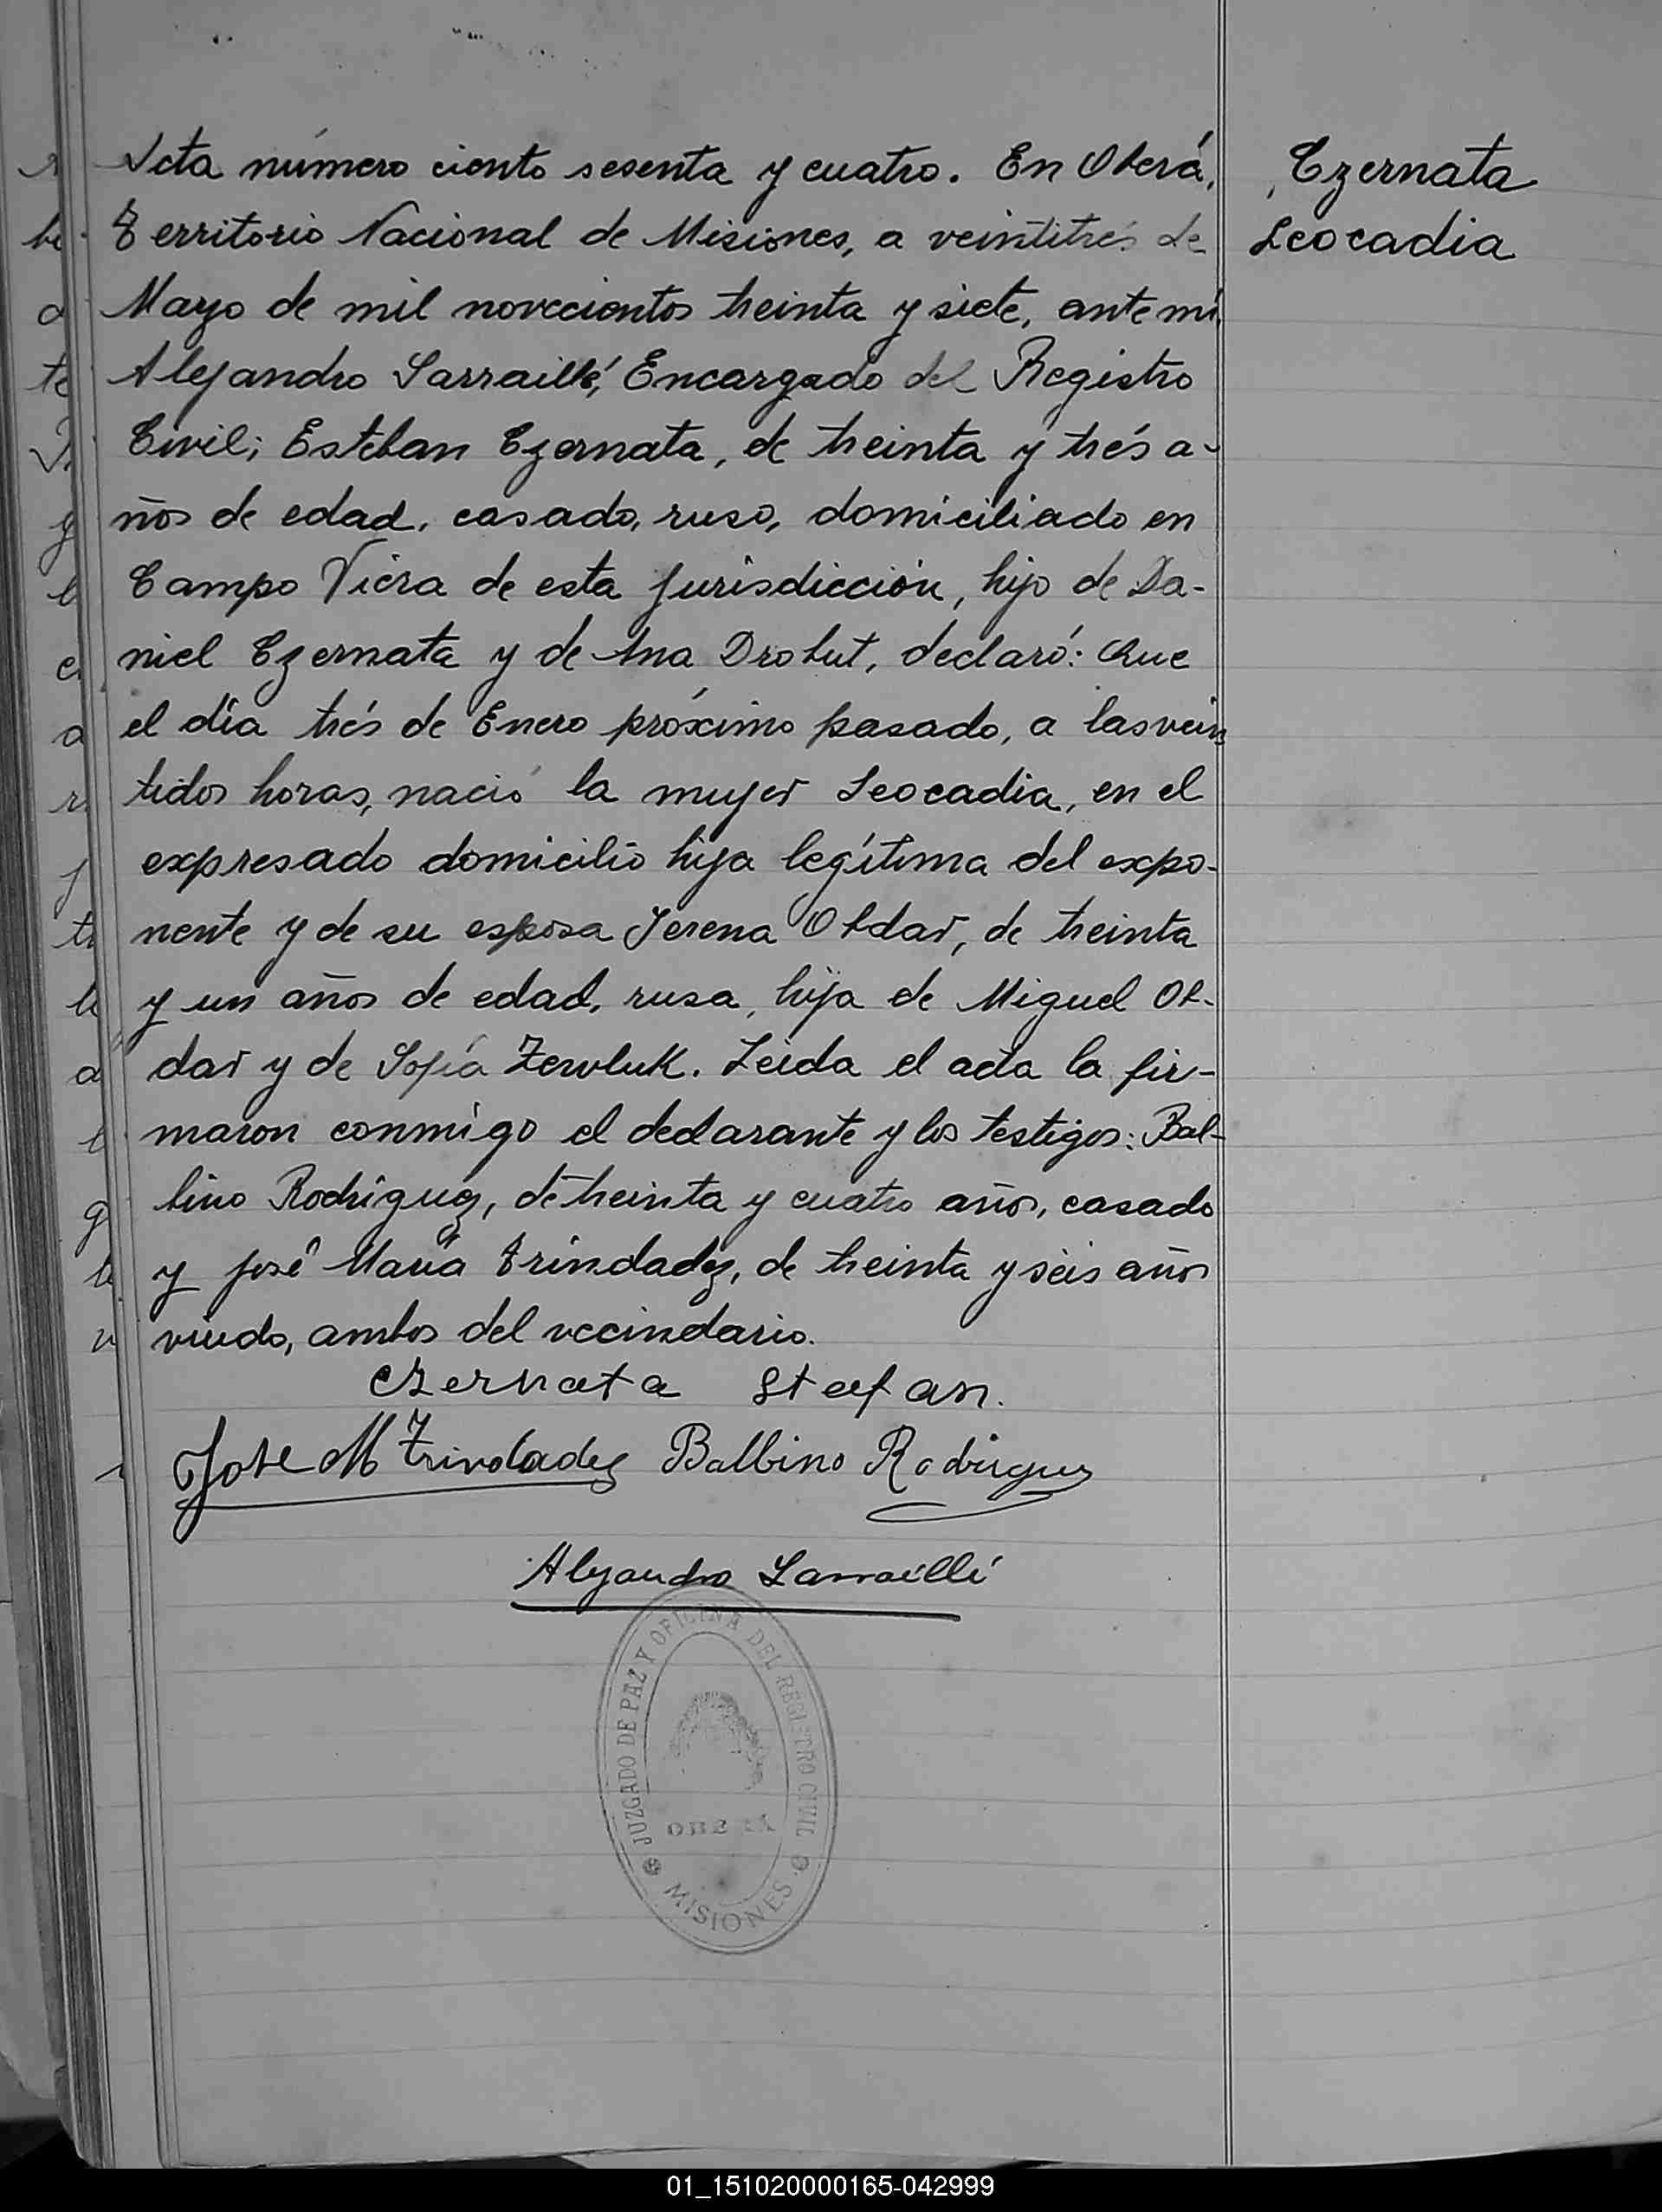 Acta número ciento sesenta y cuatro. En Oberá,
Territorio Nacional de Misiones, a veintitrés de
Mayo de mil novecientos treinta y siete, ante mí,
Alejandro Sarraillé, Encargado del Registro
Civil; Esteban Czernata, de treinta y trés a-
ños de edad, casado, ruso, domiciliado en
Campo Viera de esta jurisdicción, hijo de Da-
niel Czernata y de Ana Drobut, declaró: Que
el día trés de Enero próximo pasado, a las vein
tidos horas, nació la mujer Leocadia, en el
expresado domicilio hija legítima del expo-
nente y de su esposa Jerena Obdar, de treinta
y un años de edad, rusa, hija de Miguel Ob-
dar y de Sofía Zewluk. Leida el acta la fir-
maron conmigo el declarante y los testigos: Bal-
bino Rodríguez, de treinta y cuatro años, casado
y José María Trindadez, de treinta y seis años
viudo, ambos del vecindario.
Czernata Stefan.
Jose M Trindadez Balbino Rodriguez
Alejandro Sarraillé
JUZGADO DE PAZ Y OFICINA DEL REGISTRO CIVIL
OBERÁ
MISIONES
Czernata
Leocadia
01_151020000165-042999